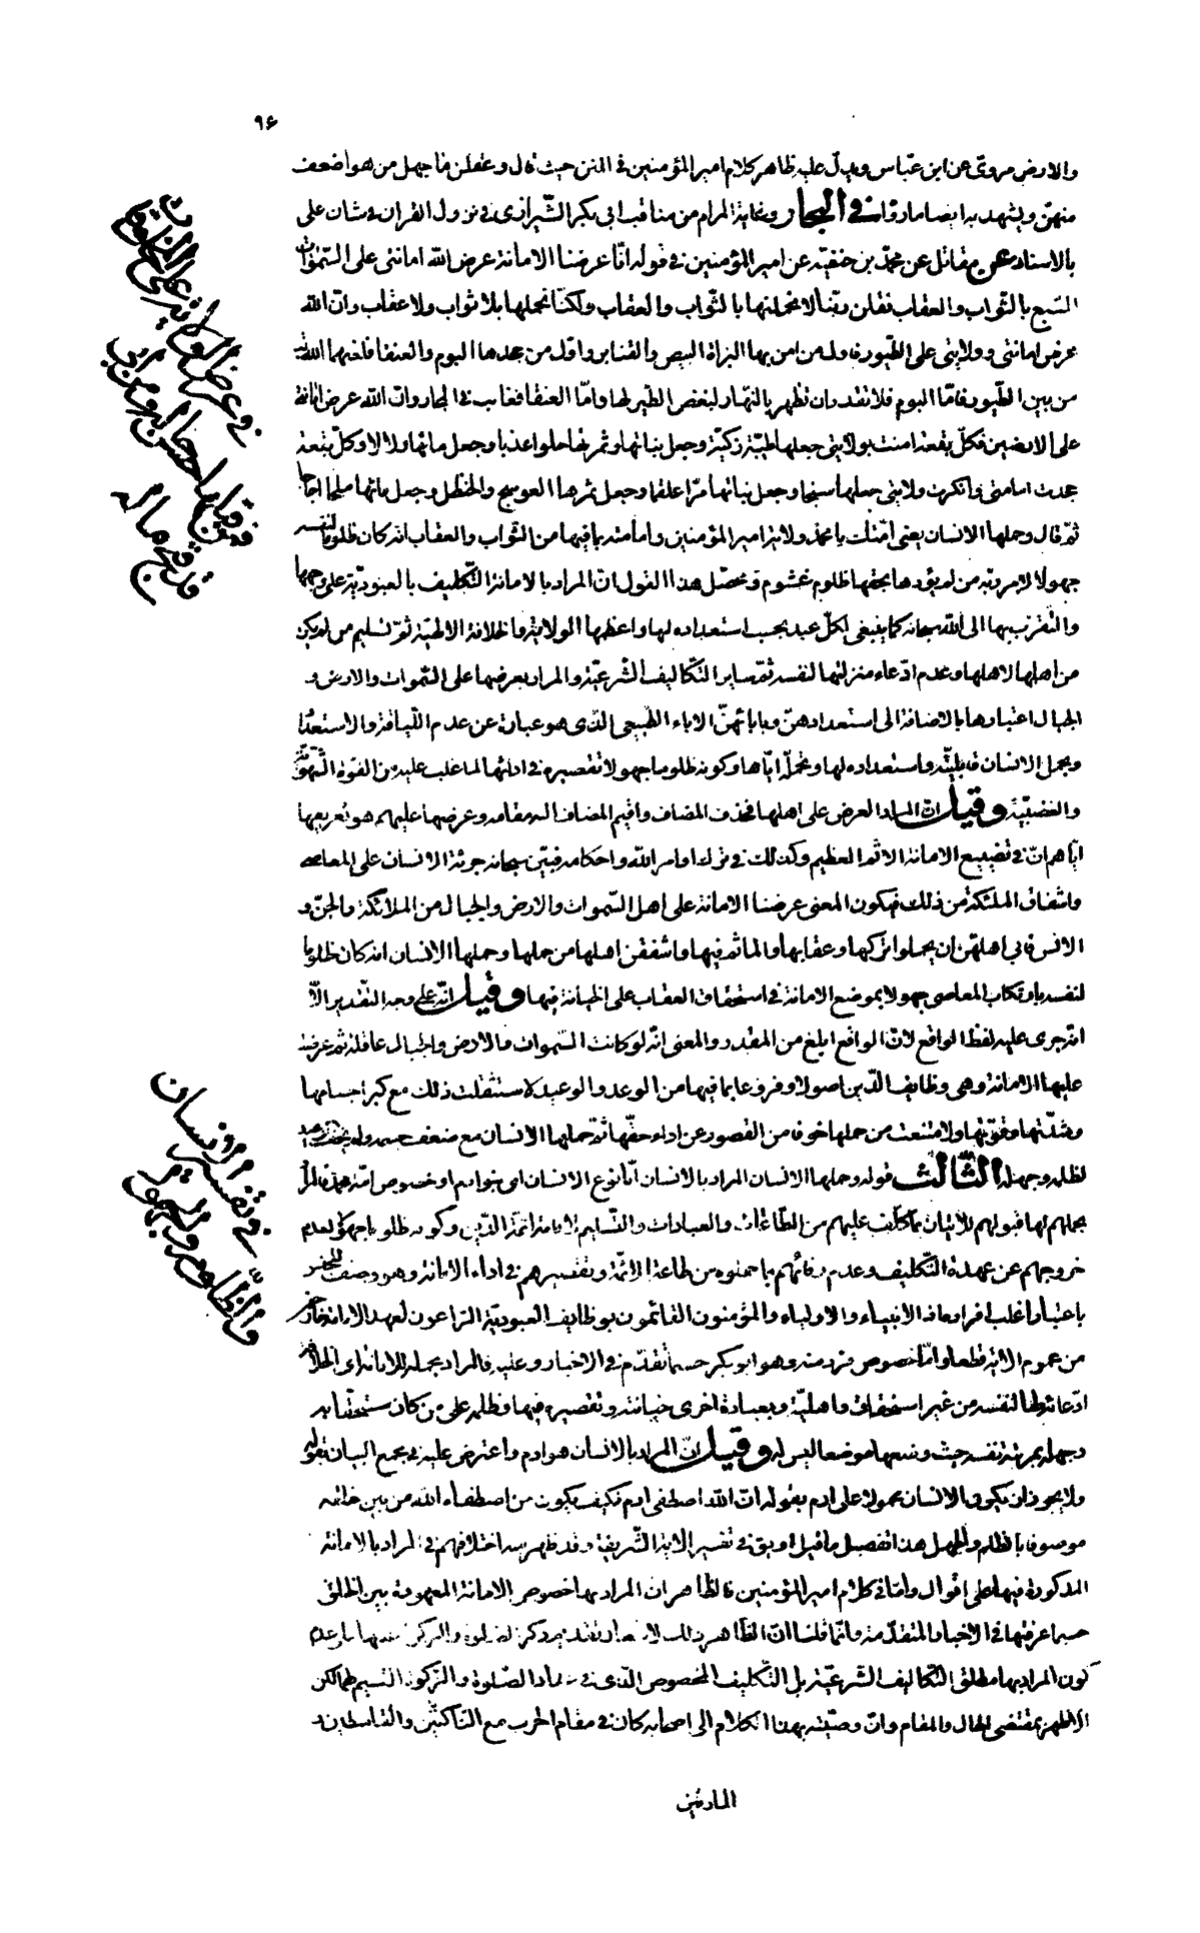 ٩۶
والارض مروىّ عن ابن عبّاس ويدلّ عليه ظاهر كلام امير المؤمنين فى المتن حيث قال وعقلن ما جهل من هو اضعف
منهنّ ويشهد به ايضا ما رواه فى البحار وغاية المرام من مناقب ابى بكر الشّيرازى فى نزول القران فى شان على
بالاسناد عن مقاتل عن محمّد بن حنفيّه عن امير المؤمنين فى قوله انّا عرضنا الامانة عرض الله امانتى على السّموات
السّبع بالثّواب والعقاب فقلن ربّنا لا نحملنها بالثّواب والعقاب ولكنّا نحملها بلا ثواب ولا عقاب وانّ الله
عرض امانتى وولايتى على الطّيور فاول من امن بها البزاة البيض والقنابر واوّل من جحدها البوم والعنقا فلعنهما الله
من بين الطّيور فامّا البوم فلا تقدر ان تظهر بالنّهار لبغض الطّير لها وامّا العنقا فغاب فى البحار وانّ الله عرض امانتى
على الارضين فكلّ بقعة امنت بولايتى جعلها طيّبة زكيّة وجعل نباتها وثمرتها حلوا عذبا وجعل مائها زلالا وكلّ بقعة
جحدت امامتى وانكرت ولايتى جعلها سبخا وجعل نباتها مرّا علقما وجعل ثمرها العوسج والحنظل وجعل مائها ملحا اجاجا
ثمّ قال وحملها الانسان يعنى امّتك يا محمّد ولاية امير المؤمنين وامامته بما فيها من الثّواب والعقاب انّه كان ظلوما لنفسه
جهولا لامر ربّه من لم يؤدها بحقها ظلوم غشوم و محصّل هذا القول انّ المراد بالامانة التّكليف بالعبوديّة على وجهها
والتقرّب بها الى الله سبحانه كما ينبغى لكلّ عبد بحسب استعداده لها واعظمها الولاية والخلافة الالهيّة ثمّ تسليم من لم يكن
من اهلها لاهلها وعدم ادّعاء منزلتها لنفسه ثمّ ساير التّكاليف الشّرعيّة والمراد بعرضها على السّموات والارض و
الجبال اعتبارها بالاضافة الى استعدادهنّ وبابائهنّ الاباء الطّبيعى الذى هو عبارة عن عدم اللّياقة والاستعداد
وبحمل الانسان قابليّته واستعداده لها وتحمّله ايّاها وكونه ظلوما جهولا تقصيره فى ادائها لما غلب عليه من القوة الشّهويّة
والغضبيّة وقيل انّ المراد العرض على اهلها فحذف المضاف واقيم المضاف اليه مقامه وعرضها عليهم هو تعريفها
ايّاهم انّ فى تضييع الامانة الاثم العظيم وكذلك فى ترك اوامر الله واحكامه فبيّن سبحانه جرئة الانسان على المعاصى
واشفاق الملئكة من ذلك فيكون المعنى عرضنا الامانة على اهل السّموات والارض والجبال من الملائكة والجنّ و
الانس فابى اهلهنّ ان يحملوا تركها وعقابها والماثم فيها واشفقن اهلها من حملها وحملها الانسان انه كان ظلوما
لنفسه بارتكاب المعاصى جهولا بموضع الامانة فى استحقاق العقاب على الخيانة فيها وقيل انّه على وجه التّقدير الّا
انّه جرى عليه لفظ الواقع لانّ الواقع ابلغ من المقدر والمعنى انّه لو كانت السّموات والارض والجبال عاقلة ثم عرضت
عليها الامانة وهى وظايف الدّين اصولا وفروعا بما فيها من الوعد والوعيد لاستثقلت ذلك مع كبر اجسامها
وشدّتها وقوّتها ولامتنعت من حملها خوفا من القصور عن اداء حقّها ثمّ حملها الانسان مع ضعف جسمه ولم يخف الوعيد
لظلمه وجهله الثّالث قوله وحملها الانسان المراد بالانسان امّا نوع الانسان اى بنو ادم او خصوص امّة محمّد فالمراد
بحملهم لها قبولهم للاتيان بما كلّف عليهم من الطّاعات والعبادات والتّسليم لامامة ائمّة الدّين وكونه ظلوما جهولا لعدم
خروجهم عن عهدة التّكليف وعدم وفائهم بما حملوه من طاعة الائمّة وتقصيرهم فى اداء الامانة وهو وصف للجنس
باعتبار اغلب افراده اذ الانبياء والاولياء والمؤمنون القائمون بوظايف العبوديّة الرّاعون لعهد الامانة خارجون
من عموم الاية قطعا وامّا خصوص فرد منه وهو ابو بكر حسبما تقدّم فى الاخبار وعليه فالمراد بحمله للامانة اى الخلافة
ادّعائه لها لنفسه من غير استحقاق واهليّة وبعبارة اخرى خيانته وتقصيره فيها وظلمه على من كان مستحقّا به
وجهله بمرتبة نفسه حيث وضعها موضعا ليس له وقيل انّ المراد بالانسان هو ادم واعترض عليه فى مجمع البيان بقوله
ولا يجوز ان يكون الانسان محمولا على ادم بقوله انّ الله اصطفى ادم فكيف يكون من اصطفاه الله من بين خلقه
موصوفا بالظلم والجهل هذا تفصيل ما قيل او يق فى تفسير الاية الشّريفة وقد ظهر منه اختلافهم فى المراد بالامانة
المذكورة فيها على اقوال وامّا فى كلام امير المؤمنين فالظاهر ان المراد بها خصوص الامانة المعهودة بين الخلق
حسبما عرفتها فى الاخبار المتقدّمة وانّما قلنا انّ الظاهر ذلك
كون المراد بها مطلق التّكاليف الشّرعيّة بل التّكليف المخصوص الّذى فى عداد الصّلوة والزّكوة القسيم لهما لكن
الاظهر بمقتضى الحال والمقام وانّ وصيّته بهذا الكلام الى اصحابه كان فى مقام الحرب مع النّاكثين والقاسطين و
المارقين
فى تفسير الانسان
والظّلوم والجهول